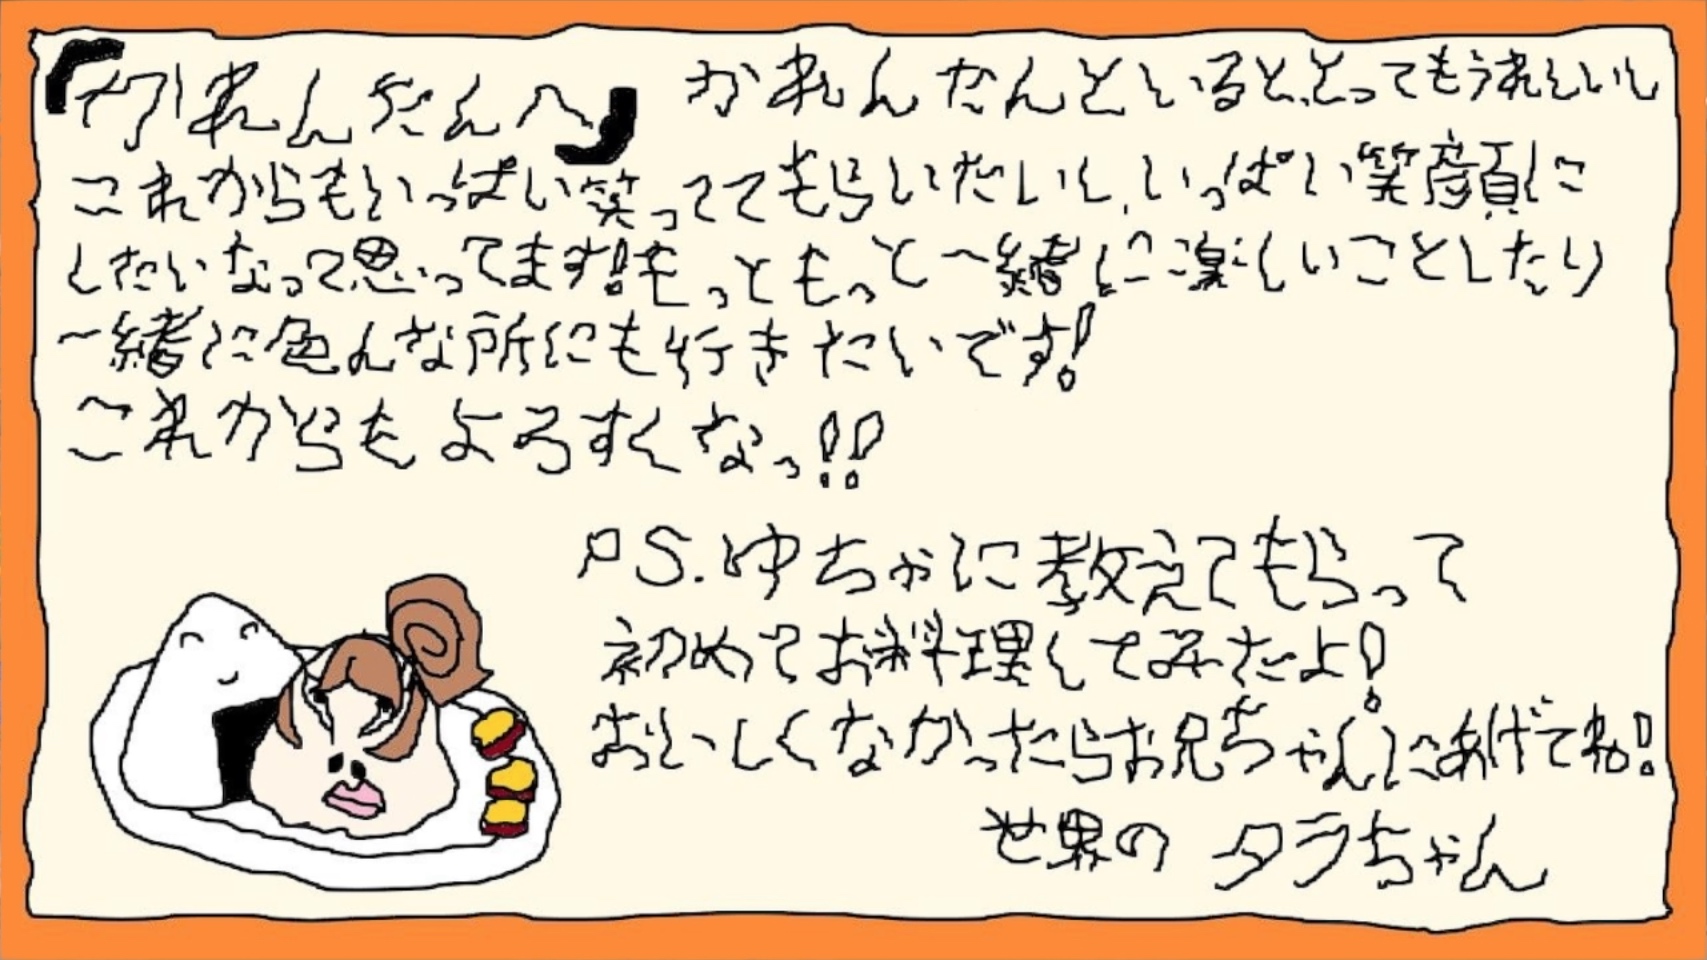 『かれんたんへ』 かれんたんといると、とってもうれしいし
これからもいっぱい笑っててもらいたいし、いっぱい笑顔に
したいなって思ってます!もっともっと一緒に楽しいことしたり
一緒に色んな所にも行きたいです!
これからもよろすくなっ!!
PS.ゆちゃに教えてもらって
初めてお料理してみたよ!
おいしくなかったらお兄ちゃんにあげてね!
世界のタラちゃん